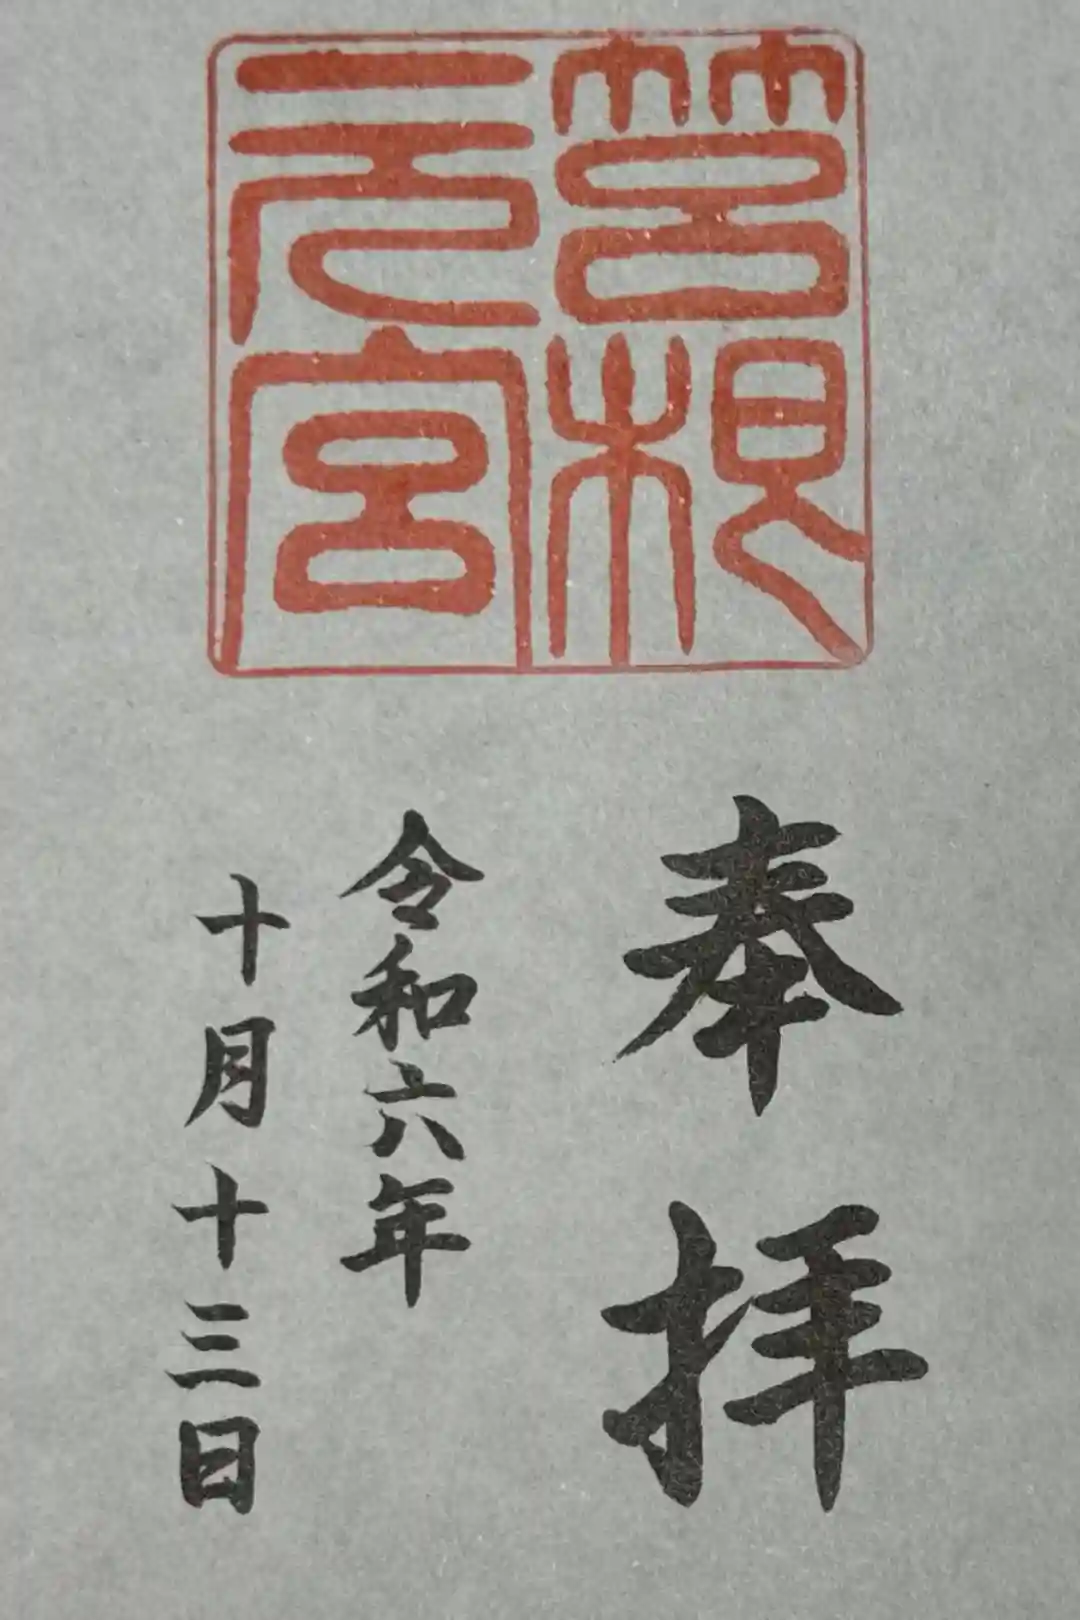 筥根
元宮
奉拝
令和六年
十月十三日